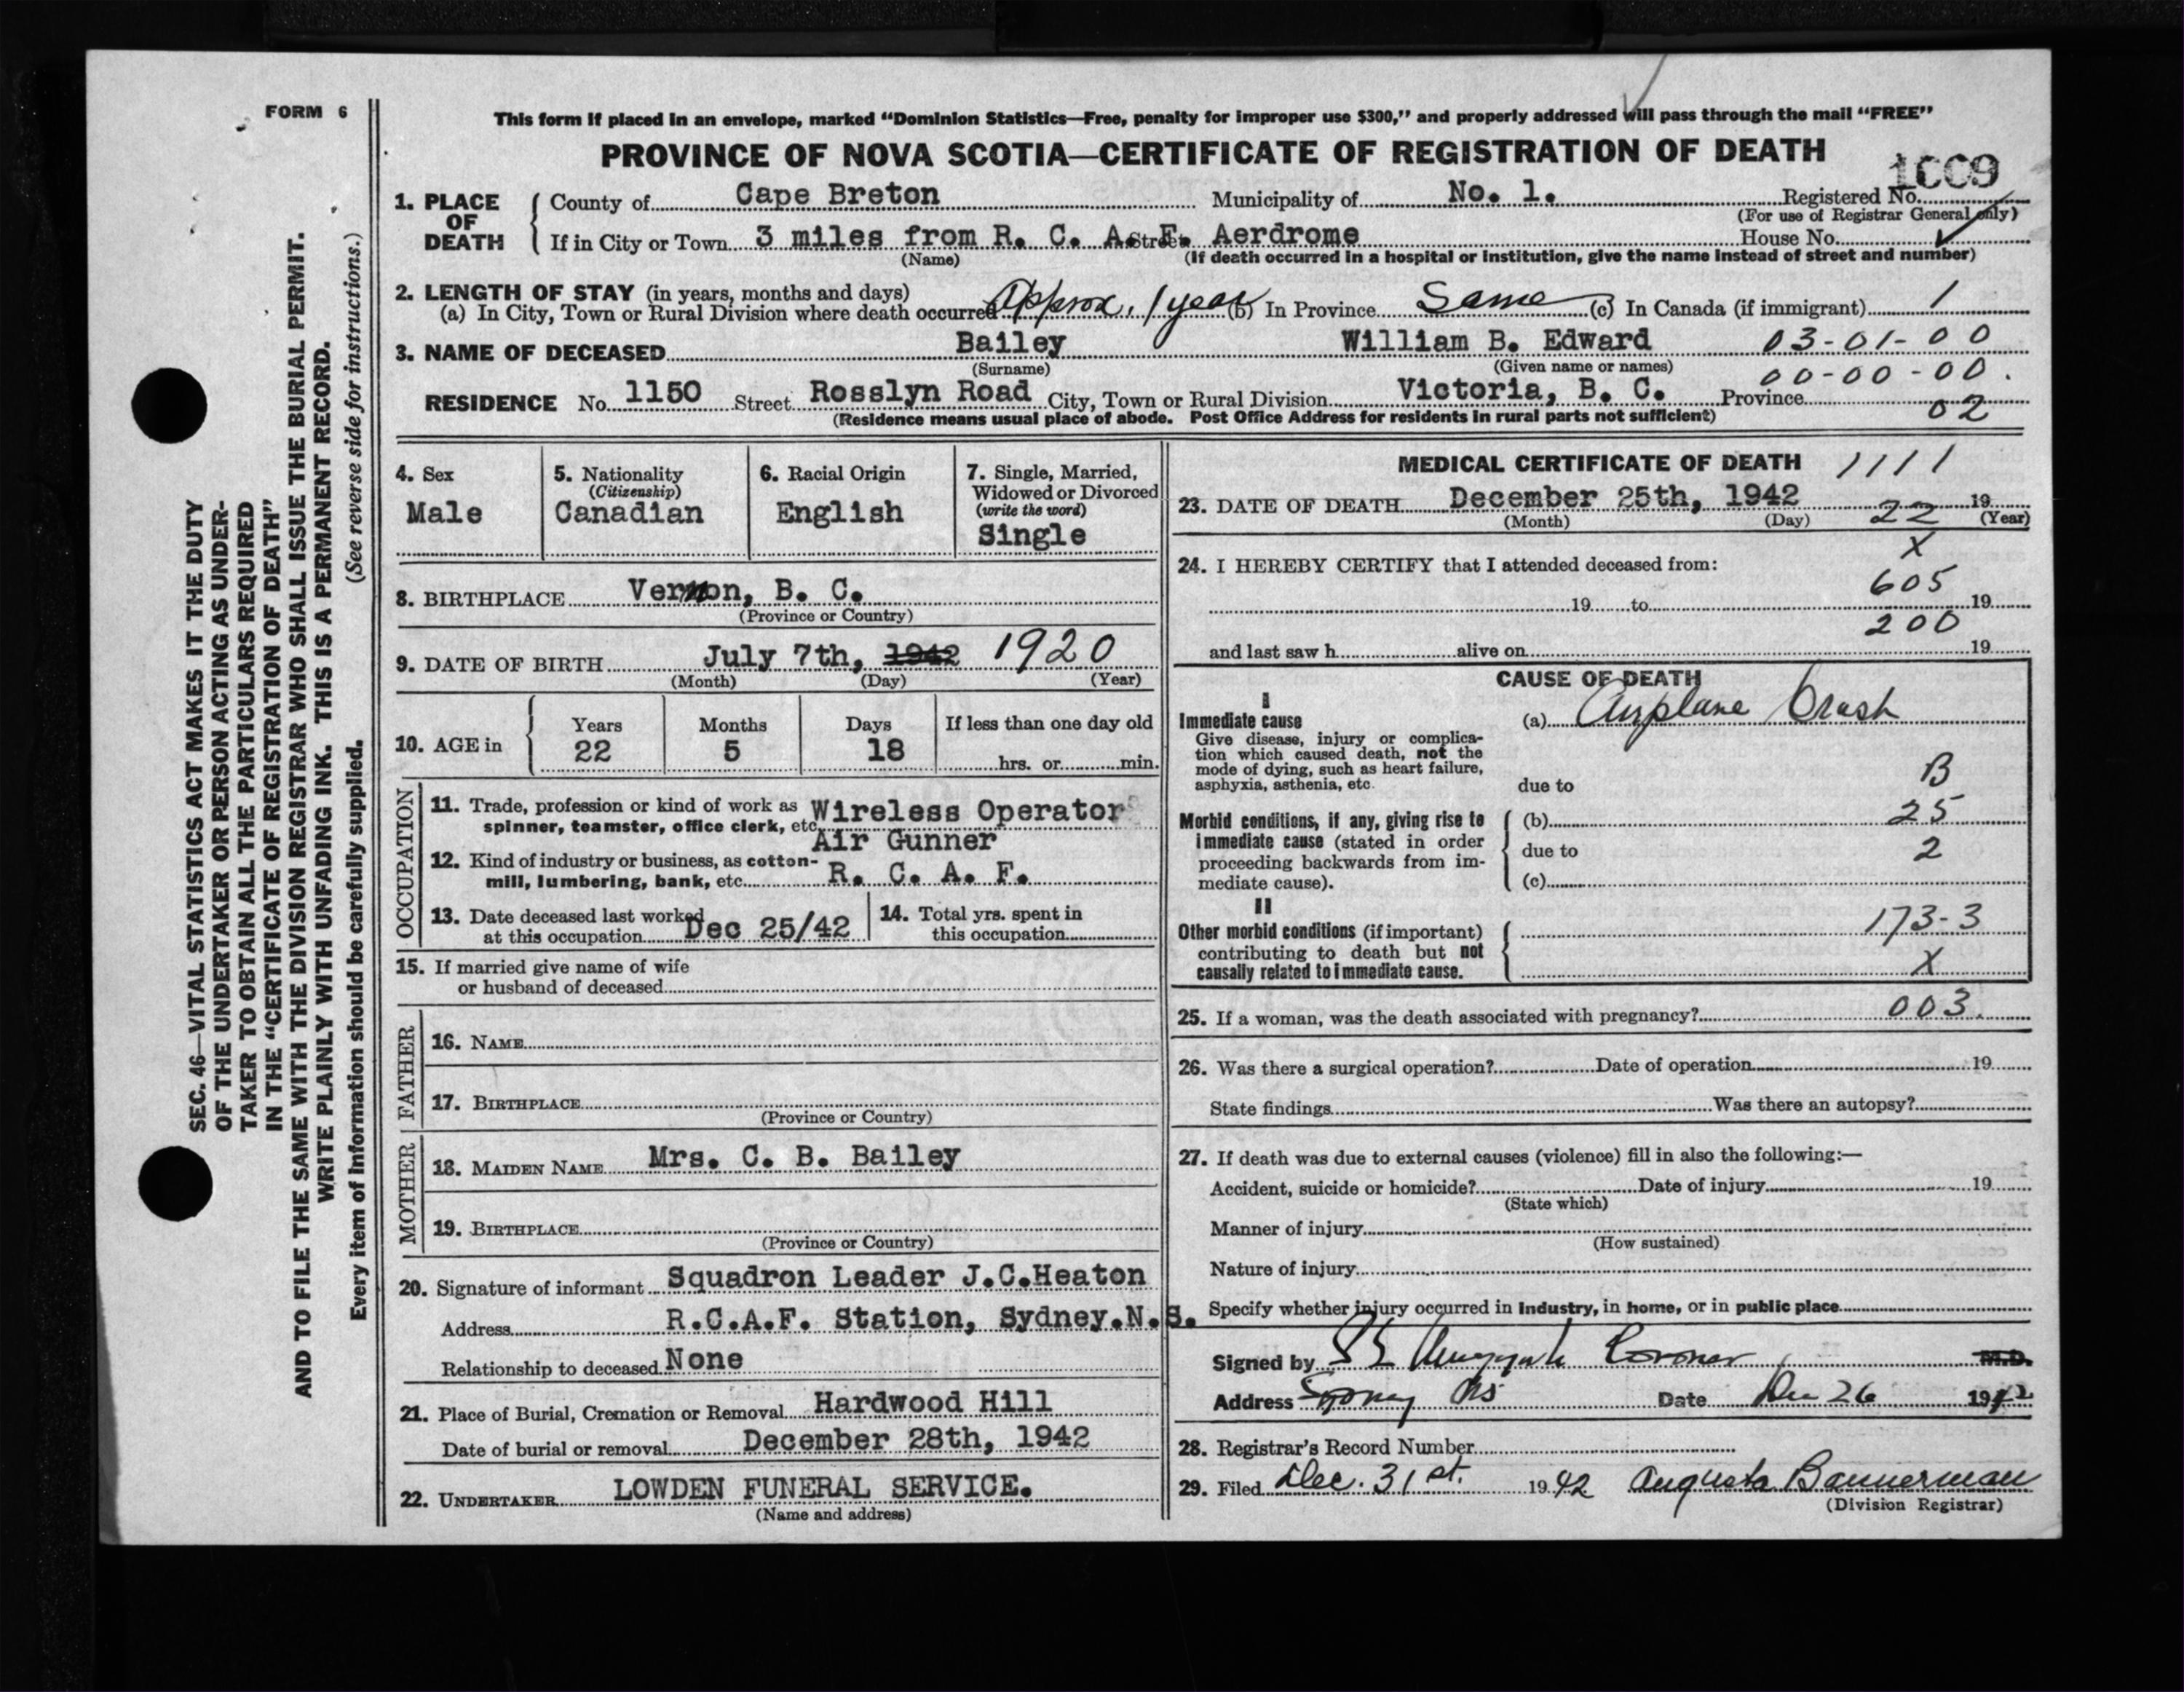 FORM 6
This form if placed in an envelope, marked “Dominion Statistics—Free, penalty for improper use $300,” and properly addressed will pass through the mail “FREE”
PROVINCE OF NOVA SCOTIA—CERTIFICATE OF REGISTRATION OF DEATH
1009
1. PLACE OF DEATH
County of Cape Breton Municipality of No. 1. Registered No.
(For use of Registrar General only)
If in City or Town 3 miles from R. C. A. F. Street Aerdrome House No.
(Name) (If death occurred in a hospital or institution, give the name instead of street and number)
2. LENGTH OF STAY (in years, months and days)
(a) In City, Town or Rural Division where death occurred Approx. 1 year (b) In Province Same (c) In Canada (if immigrant) 1
3. NAME OF DECEASED Bailey William B. Edward 03-01-00
(Surname) (Given name or names) 00-00-00.
RESIDENCE No. 1150 Street Rosslyn Road City, Town or Rural Division Victoria, B. C. Province 02
(Residence means usual place of abode. Post Office Address for residents in rural parts not sufficient)
4. Sex
Male
5. Nationality
(Citizenship)
Canadian
6. Racial Origin
English
7. Single, Married,
Widowed or Divorced
(write the word)
Single
8. BIRTHPLACE Vernon, B. C.
(Province or Country)
9. DATE OF BIRTH July 7th, 1942 1920
(Month) (Day) (Year)
10. AGE in
Years Months Days If less than one day old
22 5 18 hrs. or min.
OCCUPATION
11. Trade, profession or kind of work as Wireless Operator
spinner, teamster, office clerk, etc. Air Gunner
12. Kind of industry or business, as cotton-
mill, lumbering, bank, etc. R. C. A. F.
13. Date deceased last worked
at this occupation Dec 25/42
14. Total yrs. spent in
this occupation
15. If married give name of wife
or husband of deceased
FATHER
16. NAME
17. BIRTHPLACE
(Province or Country)
MOTHER
18. MAIDEN NAME Mrs. C. B. Bailey
19. BIRTHPLACE
(Province or Country)
20. Signature of informant Squadron Leader J.C.Heaton
Address R.C.A.F. Station, Sydney.N.S.
Relationship to deceased None
21. Place of Burial, Cremation or Removal Hardwood Hill
Date of burial or removal December 28th, 1942
22. UNDERTAKER LOWDEN FUNERAL SERVICE.
(Name and address)
MEDICAL CERTIFICATE OF DEATH 1111
23. DATE OF DEATH December 25th, 1942 19
(Month) (Day) 22 (Year)
X
24. I HEREBY CERTIFY that I attended deceased from:
605
19 to 19
200
and last saw h alive on 19
CAUSE OF DEATH
I
Immediate cause (a) Airplane Crash
Give disease, injury or complica-
tion which caused death, not the
mode of dying, such as heart failure,
asphyxia, asthenia, etc. due to B
Morbid conditions, if any, giving rise to (b) 25
immediate cause (stated in order due to 2
proceeding backwards from im-
mediate cause). (c)
II
Other morbid conditions (if important) 173-3
contributing to death but not
causally related to immediate cause. X
25. If a woman, was the death associated with pregnancy? 003.
26. Was there a surgical operation? Date of operation 19
State findings Was there an autopsy?
27. If death was due to external causes (violence) fill in also the following:—
Accident, suicide or homicide? Date of injury 19
(State which)
Manner of injury
(How sustained)
Nature of injury
Specify whether injury occurred in industry, in home, or in public place
Signed by Coroner M.D.
Address Sydney NS Date Dec 26 1942
28. Registrar's Record Number
29. Filed Dec. 31st. 1942 Augusta Bannerman
(Division Registrar)
SEC. 46—VITAL STATISTICS ACT MAKES IT THE DUTY
OF THE UNDERTAKER OR PERSON ACTING AS UNDER-
TAKER TO OBTAIN ALL THE PARTICULARS REQUIRED
IN THE “CERTIFICATE OF REGISTRATION OF DEATH”
AND TO FILE THE SAME WITH THE DIVISION REGISTRAR WHO SHALL ISSUE THE BURIAL PERMIT.
WRITE PLAINLY WITH UNFADING INK. THIS IS A PERMANENT RECORD.
Every item of information should be carefully supplied. (See reverse side for instructions.)